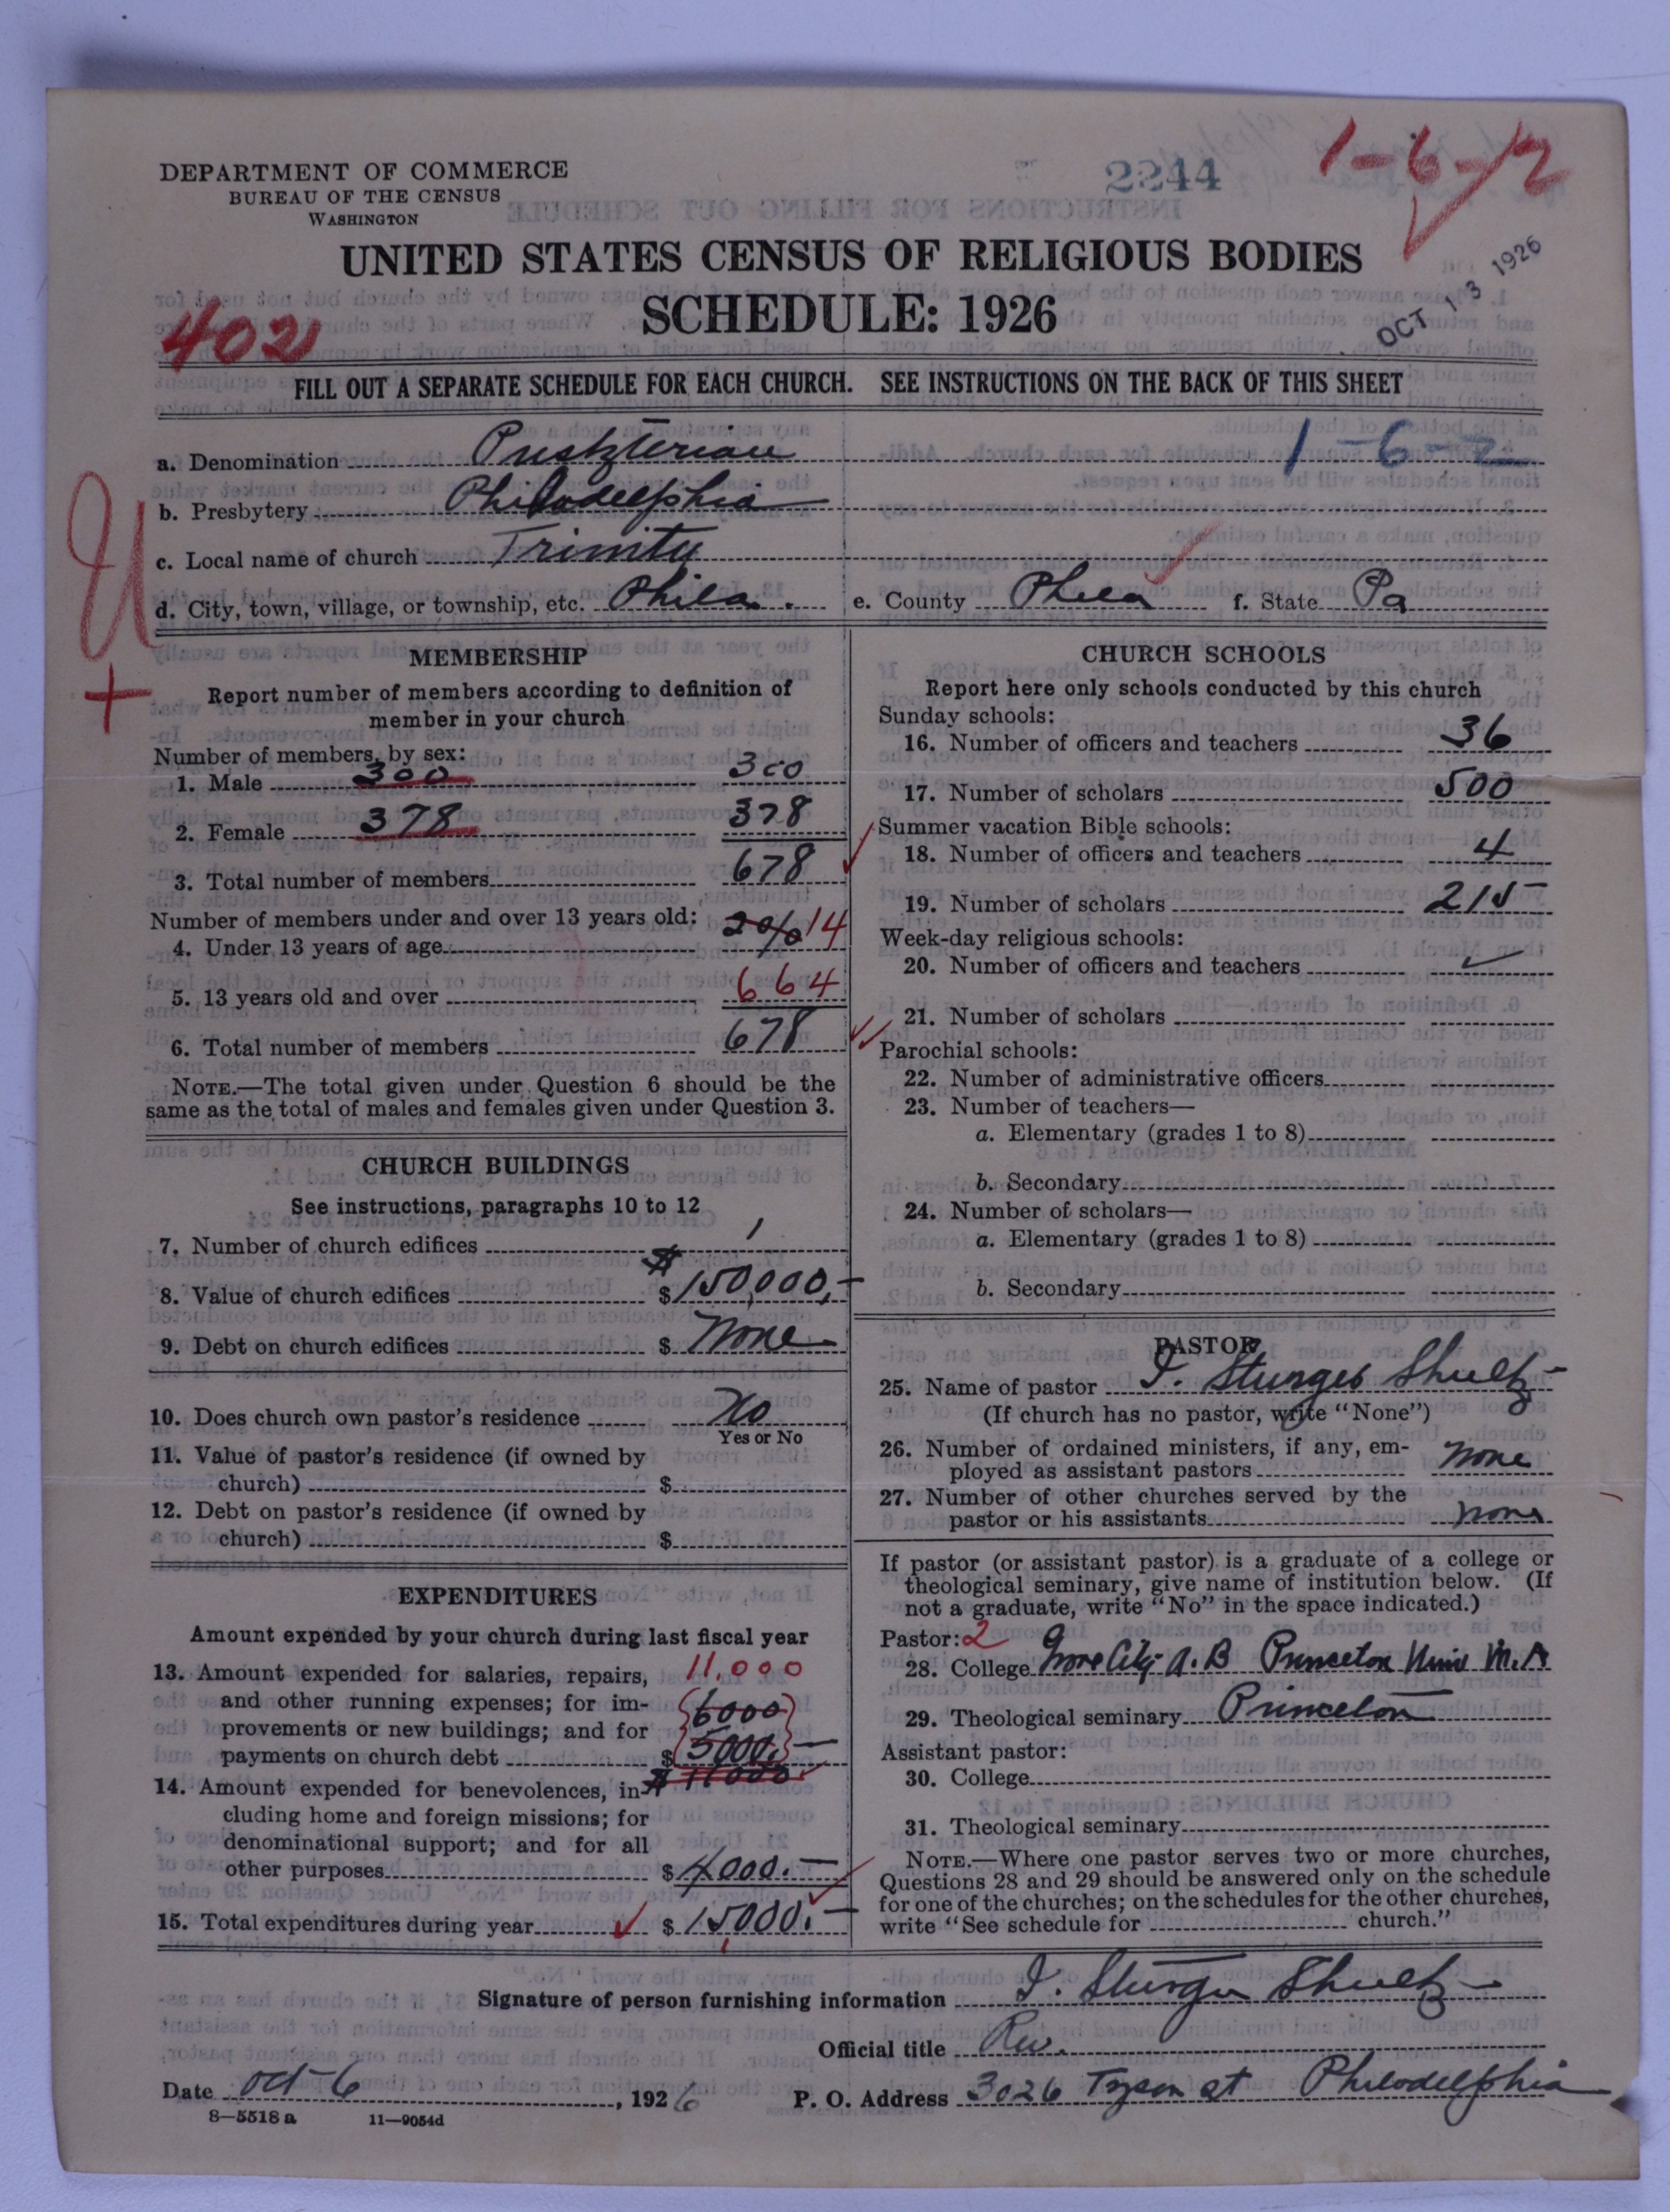 DEPARTMENT OF COMMERCE
BUREAU OF THE CENSUS
WASHINGTON
2244
1-6-2
UNITED STATES CENSUS OF RELIGIOUS BODIES
SCHEDULE: 1926
OCT 13 1926
402
FILL OUT A SEPARATE SCHEDULE FOR EACH CHURCH. SEE INSTRUCTIONS ON THE BACK OF THIS SHEET
a. Denomination Presbyterian 1-6-2
b. Presbytery Philadelphia
c. Local name of church Trinity
d. City, town, village, or township, etc. Phila. e. County Phila f. State Pa
U
+
MEMBERSHIP
Report number of members according to definition of
member in your church
Number of members, by sex:
1. Male 300 300
2. Female 378 378
3. Total number of members 678
Number of members under and over 13 years old:
4. Under 13 years of age 2% 14
5. 13 years old and over 664
6. Total number of members 678
NOTE.—The total given under Question 6 should be the
same as the total of males and females given under Question 3.
CHURCH BUILDINGS
See instructions, paragraphs 10 to 12
7. Number of church edifices 1
8. Value of church edifices $ $150,000,-
9. Debt on church edifices $ None
10. Does church own pastor's residence No
Yes or No
11. Value of pastor's residence (if owned by
church) $
12. Debt on pastor's residence (if owned by
church) $
EXPENDITURES
Amount expended by your church during last fiscal year
13. Amount expended for salaries, repairs, 11.000
and other running expenses; for im- 6000
provements or new buildings; and for
payments on church debt $ 5000.-
$ 11000
14. Amount expended for benevolences, in-
cluding home and foreign missions; for
denominational support; and for all
other purposes $ 4000.-
15. Total expenditures during year $ 15,000.-
CHURCH SCHOOLS
Report here only schools conducted by this church
Sunday schools:
16. Number of officers and teachers 36
17. Number of scholars 500
Summer vacation Bible schools:
18. Number of officers and teachers 4
19. Number of scholars 215
Week-day religious schools:
20. Number of officers and teachers
21. Number of scholars
Parochial schools:
22. Number of administrative officers
23. Number of teachers—
a. Elementary (grades 1 to 8)
b. Secondary
24. Number of scholars—
a. Elementary (grades 1 to 8)
b. Secondary
PASTOR
25. Name of pastor I. Sturges Shultz
(If church has no pastor, write "None")
26. Number of ordained ministers, if any, em-
ployed as assistant pastors None
27. Number of other churches served by the
pastor or his assistants None
If pastor (or assistant pastor) is a graduate of a college or
theological seminary, give name of institution below. (If
not a graduate, write "No" in the space indicated.)
Pastor: 2
28. College Grove City A.B Princeton Univ M.A
29. Theological seminary Princeton
Assistant pastor:
30. College
31. Theological seminary
NOTE.—Where one pastor serves two or more churches,
Questions 28 and 29 should be answered only on the schedule
for one of the churches; on the schedules for the other churches,
write "See schedule for church."
Signature of person furnishing information I. Sturges Shultz
Official title Rev.
Date Oct 6, 1926 P. O. Address 3026 Tyson St Philadelphia
8—5518 a 11—9054d